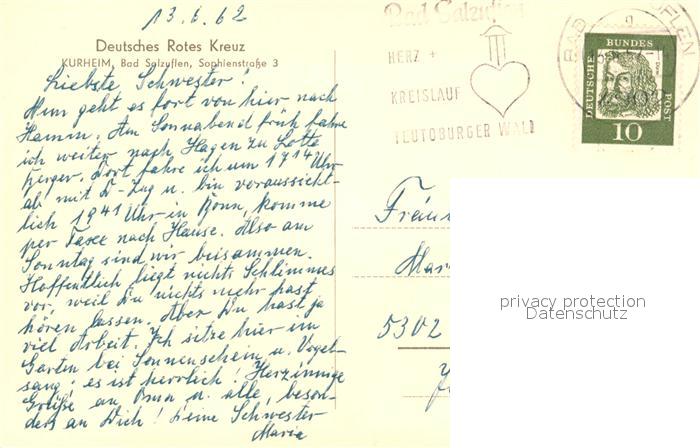 13.6.62
Deutsches Rotes Kreuz
KURHEIM, Bad Salzuflen, Sophienstraße 3
Liebste Schwester!
Nun geht es fort von hier nach
Hamm. Am Sonnabend früh fahre
ich weiter nach Hagen zu Lotte
Berger. Dort fahre ich um 17 14 Uhr
ab mit D-Zug u. bin voraussicht-
lich 19 41 Uhr in Bonn, komme
per Taxe nach Hause. Also am
Sonntag sind wir beisammen.
Hoffentlich liegt nichts Schlimmes
vor, weil Du nichts mehr hast
hören lassen. Aber Du hast ja
viel Arbeit. Ich sitze hier im
Garten bei Sonnenschein u. Vogel-
sang; es ist herrlich! Herzinnige
Grüße an Oma u. alle, beson-
ders an Dich! Deine Schwester
Maria
Bad Salzuflen
HERZ +
KREISLAUF
TEUTOBURGER WALD
DEUTSCHE
BUNDES
POST
10
Fräu
Mar
5302
privacy protection
Datenschutz